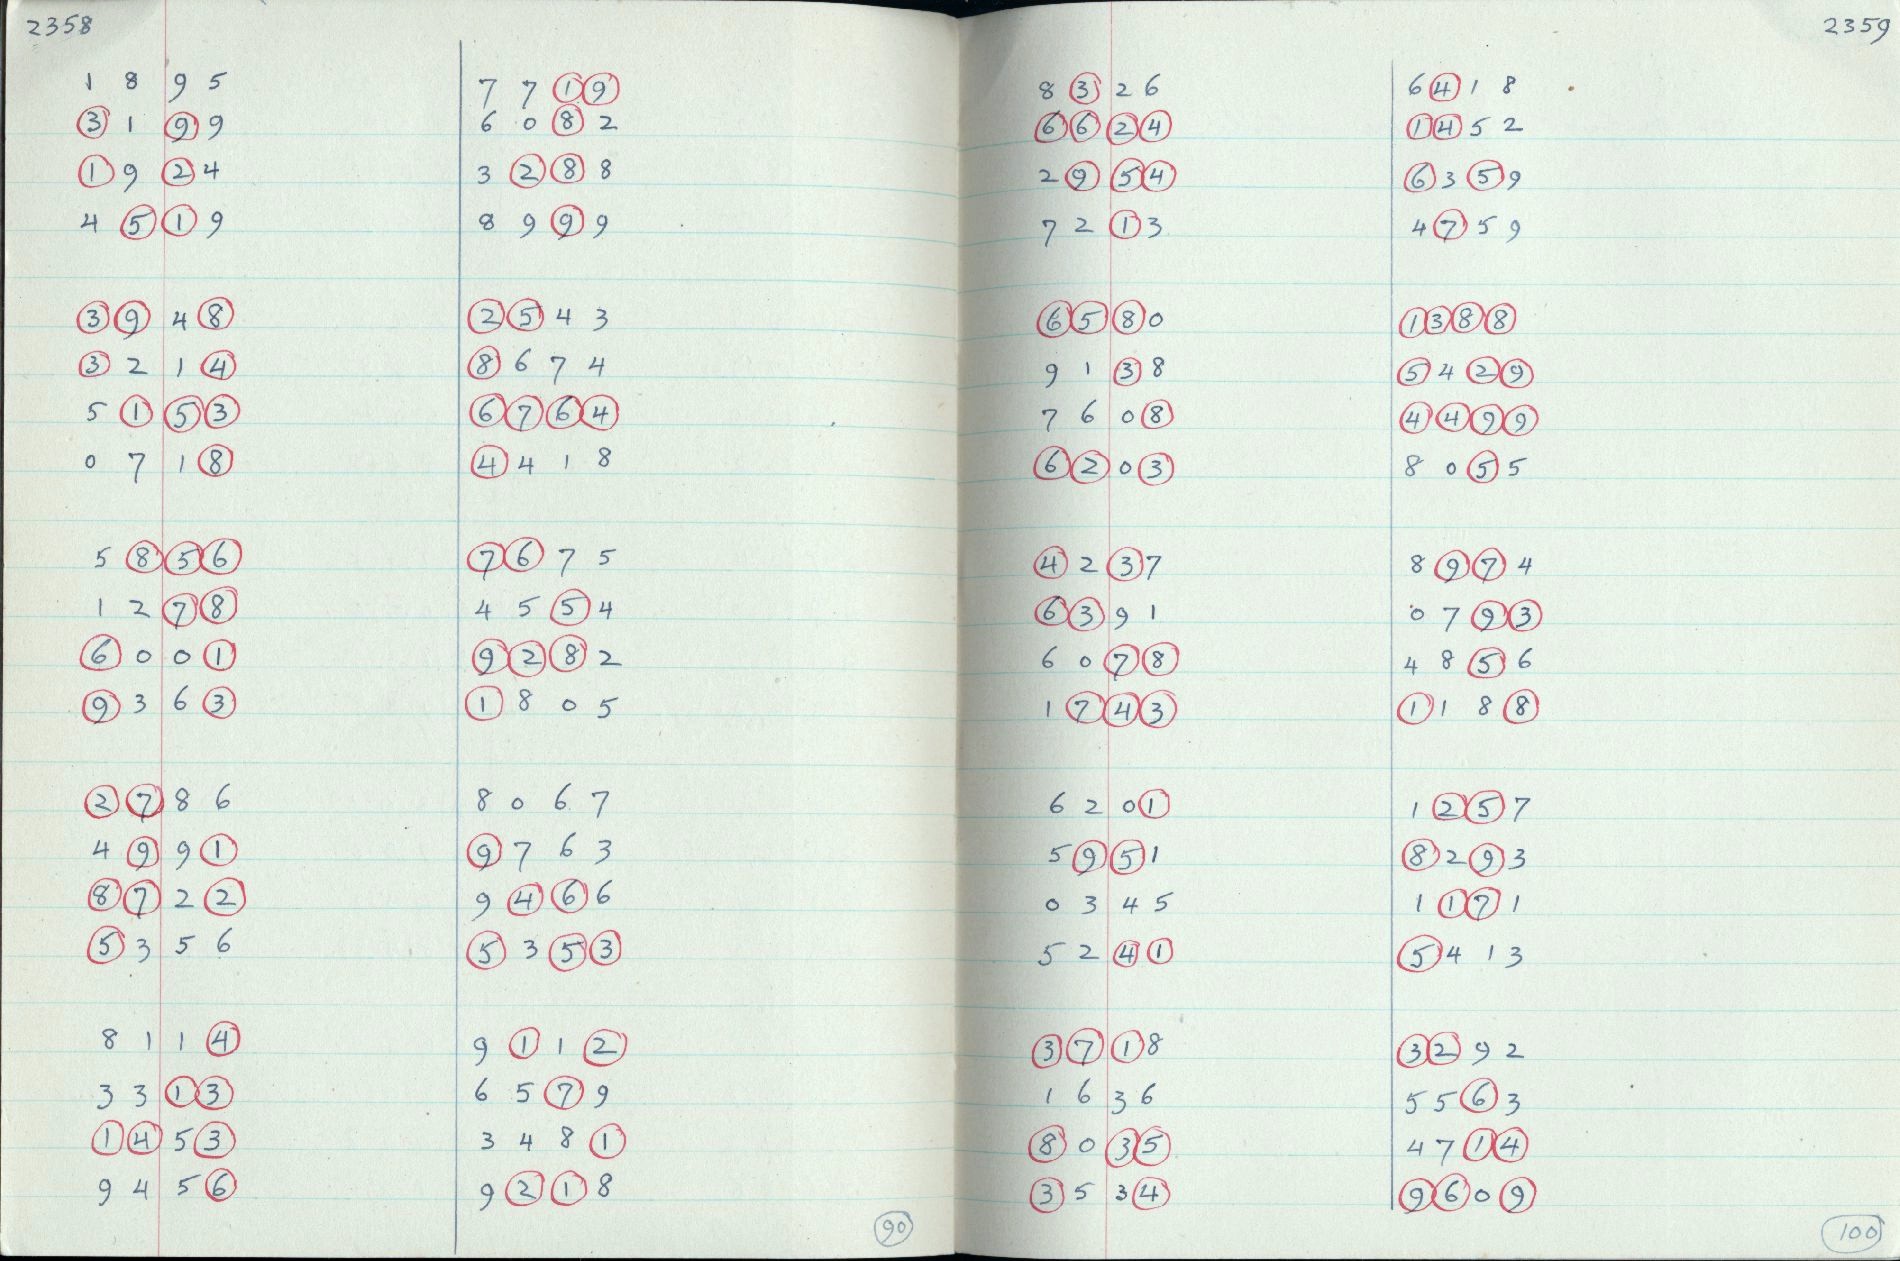 2358
1 8 9 5
3 1 9 9
1 9 2 4
4 5 1 9
3 9 4 8
3 2 1 4
5 1 5 3
0 7 1 8
5 8 5 6
1 2 7 8
6 0 0 1
9 3 6 3
2 7 8 6
4 9 9 1
8 7 2 2
5 3 5 6
8 1 1 4
3 3 1 3
1 4 5 3
9 4 5 6
7 7 1 9
6 0 8 2
3 2 8 8
8 9 9 9
2 5 4 3
8 6 7 4
6 7 6 4
4 4 1 8
7 6 7 5
4 5 5 4
9 2 8 2
1 8 0 5
8 0 6 7
9 7 6 3
9 4 6 6
5 3 5 3
9 1 1 2
6 5 7 9
3 4 8 1
9 2 1 8
90
2359
8 3 2 6
6 6 2 4
2 9 5 4
7 2 1 3
6 5 8 0
9 1 3 8
7 6 0 8
6 2 0 3
4 2 3 7
6 3 9 1
6 0 7 8
1 7 4 3
6 2 0 1
5 9 5 1
0 3 4 5
5 2 4 1
3 7 1 8
1 6 3 6
8 0 3 5
3 5 3 4
6 4 1 8
1 4 5 2
6 3 5 9
4 7 5 9
1 3 8 8
5 4 2 9
4 4 9 9
8 0 5 5
8 9 7 4
0 7 9 3
4 8 5 6
1 1 8 8
1 2 5 7
8 2 9 3
1 1 7 1
5 4 1 3
3 2 9 2
5 5 6 3
4 7 1 4
9 6 0 9
100